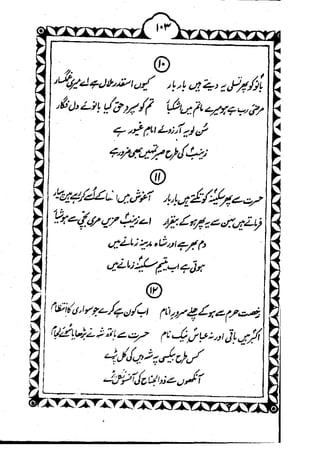 ۱۰۳
۱۰
بانو کو پھر تسلی یہ دیتے ہیں بار بار کیوں اسقدر ملال ہے اے میری غمگسار
مرضی رب ہے ہو میرے ماتم میں اشکبار تم کو سپرد حق کیا بانوئے دل نگار
سُن لو یہ آرزوئے امام غیور ہے
زینبؑ کی طرح صبر تمہیں بھی ضرور ہے
۱۱
حسرت سے پھر سکینہؑ کو تکتے ہیں بار بار آغوش میں اُٹھا کے اُسے کرتے ہیں پیار
فرماتے ہیں بہن سے یہ پھر ہو کے بیقرار اے زینبؑ حزیں مری بچی سے ہوشیار
دم بھر ہے اور شاہ مدینہ زمانے میں
ہوتی ہے اب یتیم سکینہؑ زمانے میں
۱۲
رخصت حرم سے ہو کے چلے سرور انام اب کون ہے کرے جو سواری کا انتظام
اکبرؑ ہیں باقی اور نہ عباسؑ نیک نام حسرت سے ہاتھ شہ نے بڑھایا سوئے لجام
کس طرح بیکسی پہ شہ دیں کی کل پڑے
آنکھوں سے ذوالجناح کی آنسو نکل پڑے